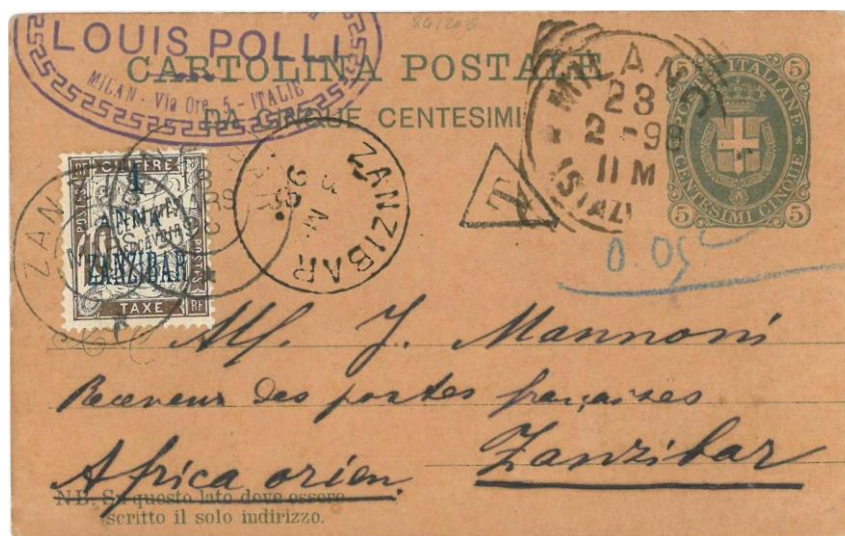 86/206
LOUIS POLLI
MILAN - Via Ore, 5 - ITALIE
CARTOLINA POSTALE
DA CINQUE CENTESIMI
MILANO
23
2-98
11 M
POSTE ITALIANE
CENTESIMI CINQUE
5 5
5 5
T
ZANZIBAR
CHIFFRE
POSTES
1
ANNA
10
ZANZIBAR
TAXE
RF
0.05
Alf. J. Mannoni
Receveur des postes françaises
Zanzibar
Africa orien.
NB. Su questo lato deve essere
scritto il solo indirizzo.